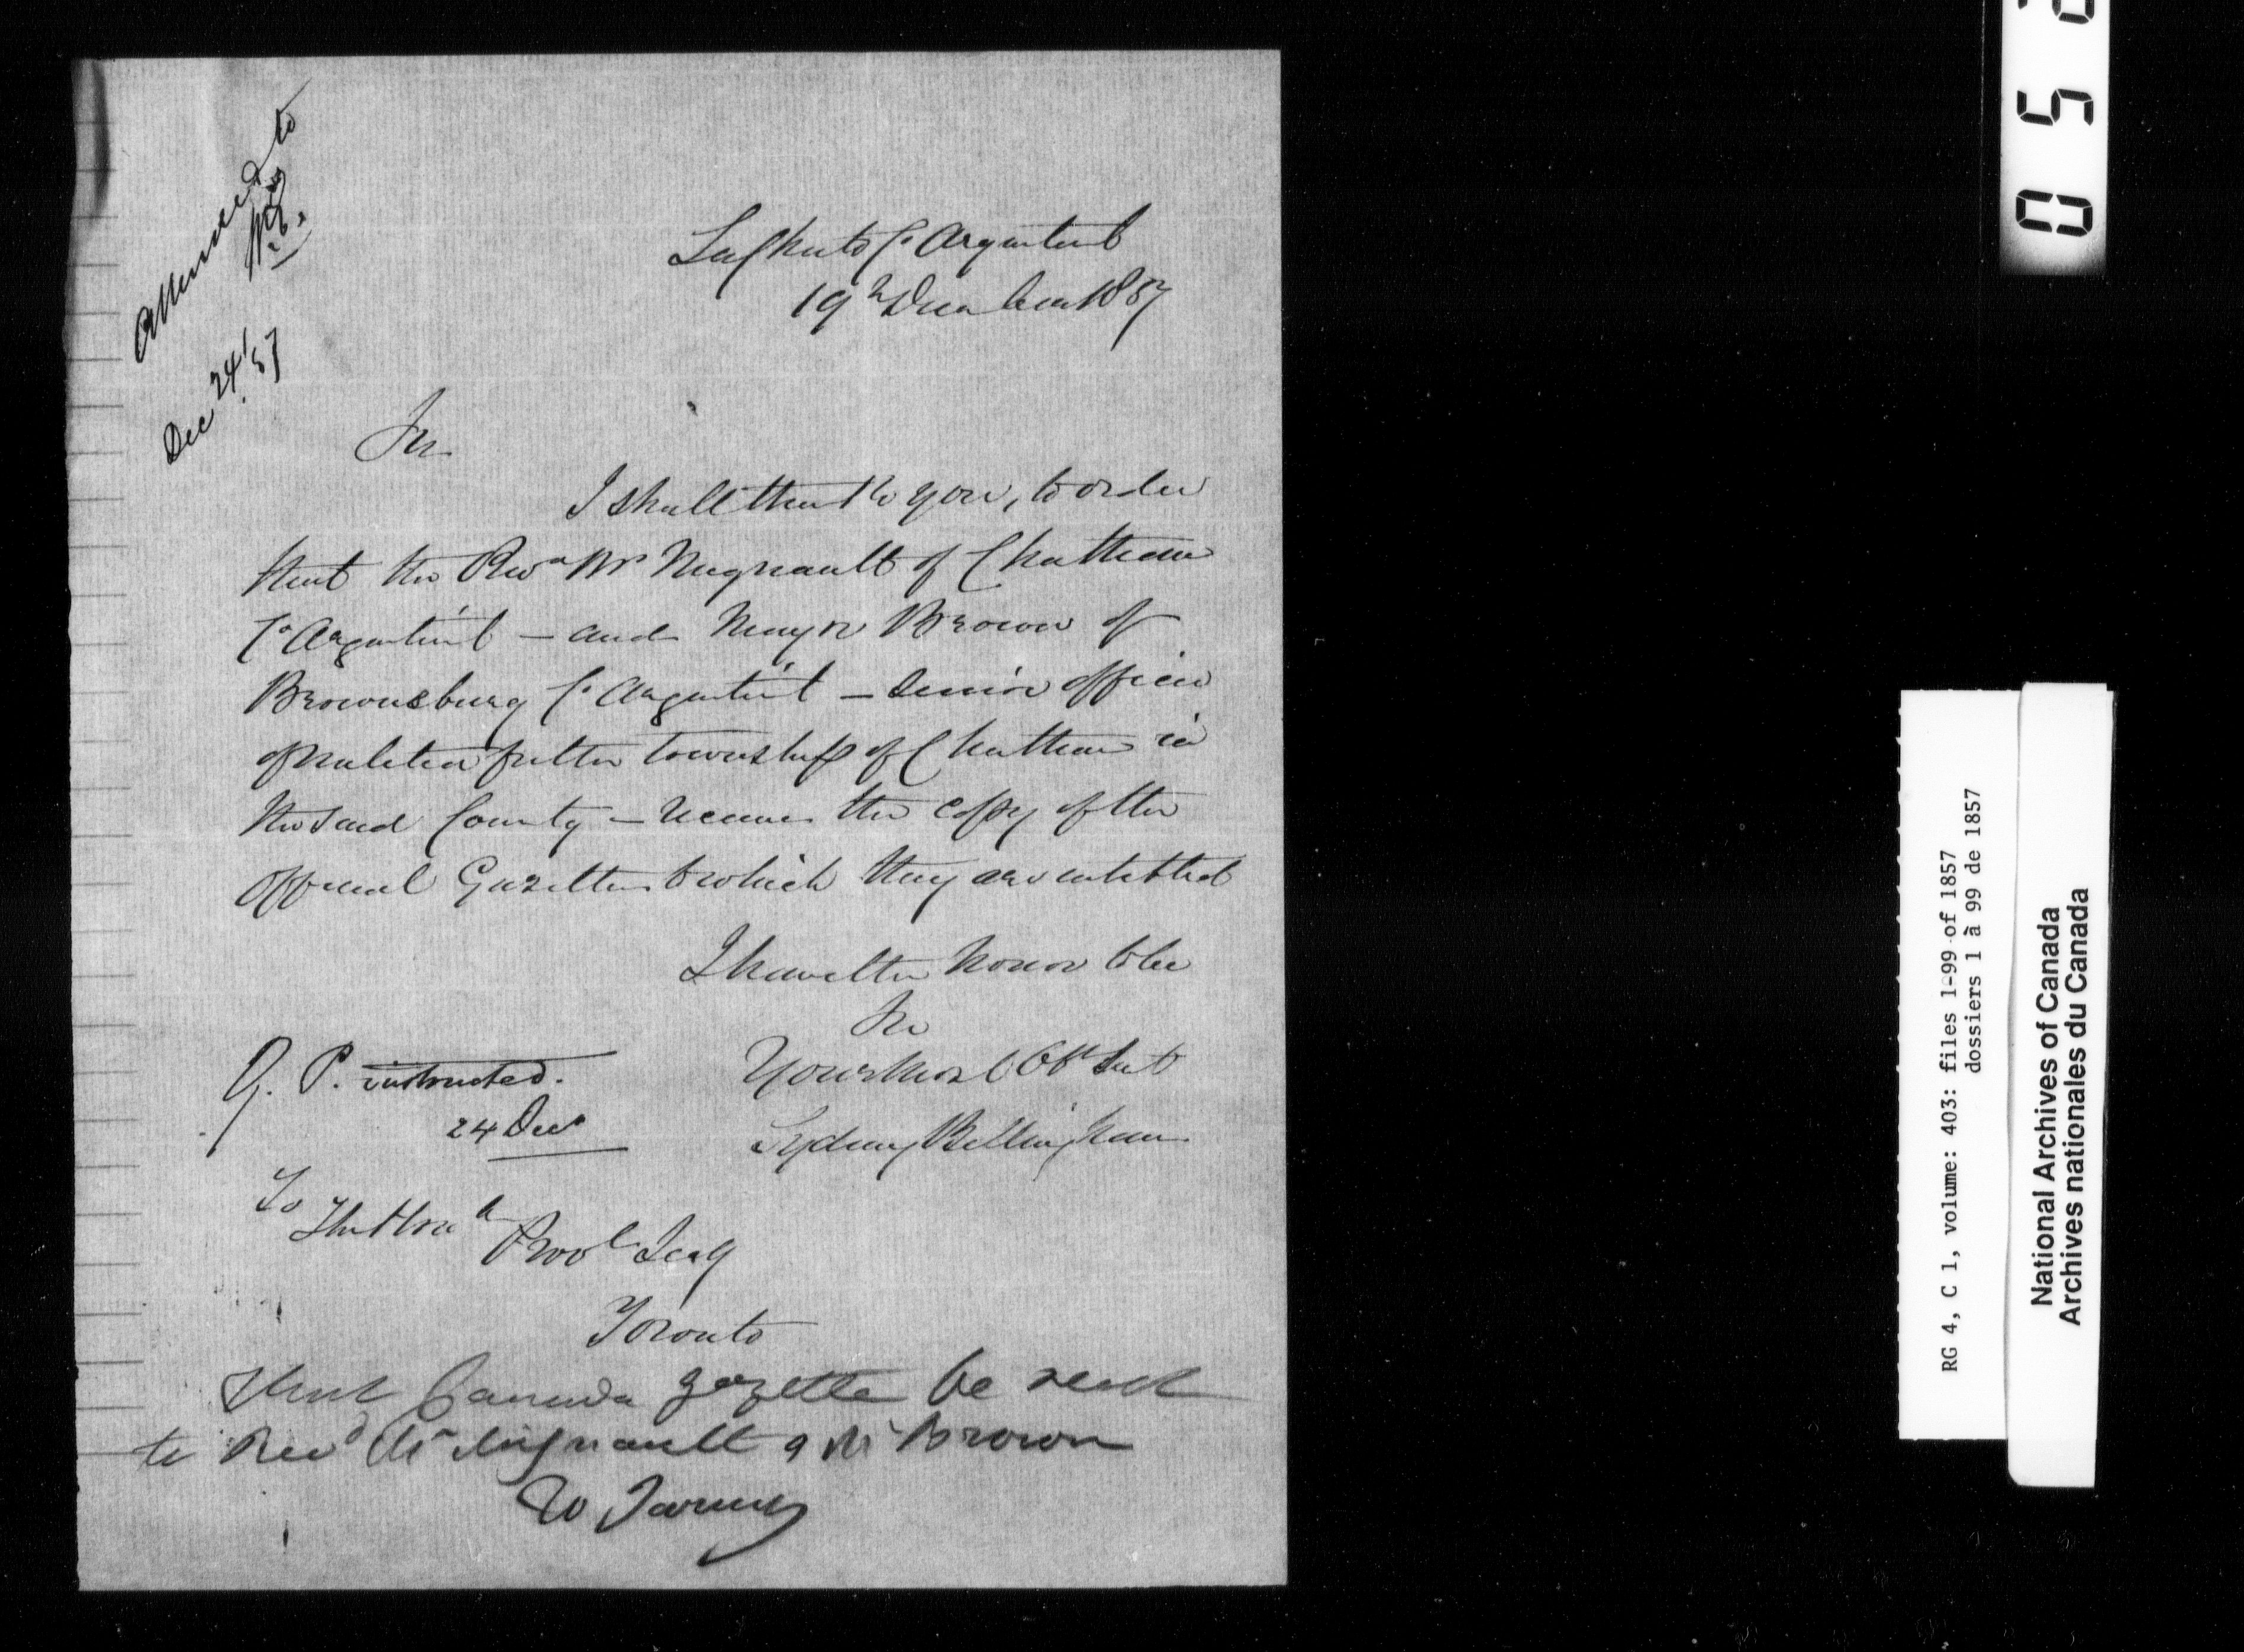 Attended to
Dec 24 / 57
Lachute Co Argenteuil
19th December 1857
Sir
I shall thank you, to order
that the Revd Mr Mignault of Chatham
Co Argenteuil — and Major Brown of
Brownsburg Co Argenteuil — senior officer
of militia for the township of Chatham in
the said County — receive the copy of the
Official Gazette to which they are entitled
I have the honor to be
Sir
Your most Obt Sert
Sydney Bellingham
Q. P. instructed.
24 Decr
To
The Honble
Provl Secy
Toronto
That Canada gazette be sent
to Revd Mr Mignault & Mr Brown
0 5 2
RG 4, C 1, volume: 403: files 1-99 of 1857
dossiers 1 à 99 de 1857
National Archives of Canada
Archives nationales du Canada